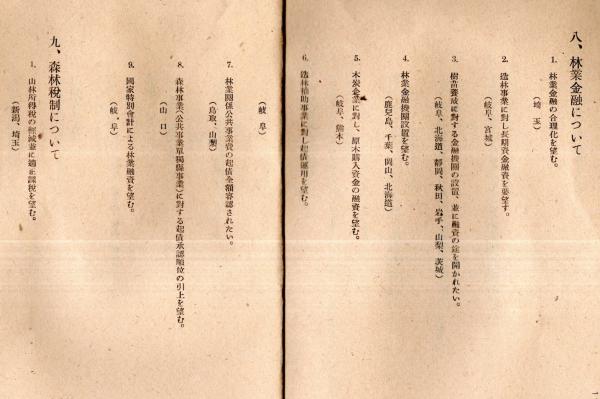 八、林業金融について
1. 林業金融の合理化を望む。
（埼 玉）
2. 造林事業に対し長期資金融資を要望す。
（岐阜、宮城）
3. 樹苗養成に対する金融機関の設置、並に融資の途を開かれたい。
（岐阜、北海道、静岡、秋田、岩手、山梨、茨城）
4. 林業金融機関設置を望む。
（鹿児島、千葉、岡山、北海道）
5. 木炭企業に対し、原木購入資金の融資を望む。
（岐阜、熊本）
6. 造林補助事業に対し起債運用を望む。
（岐 阜）
7. 林業関係公共事業費の起債全額容認されたい。
（鳥取、山梨）
8. 森林事業（公共事業単独縣事業）に対する起債承認順位の引上を望む。
（山 口）
9. 國家特別會計による林業融資を望む。
（岐 阜）
九、森林税制について
1. 山林所得税の軽減並に適正課税を望む。
（新潟、埼玉）